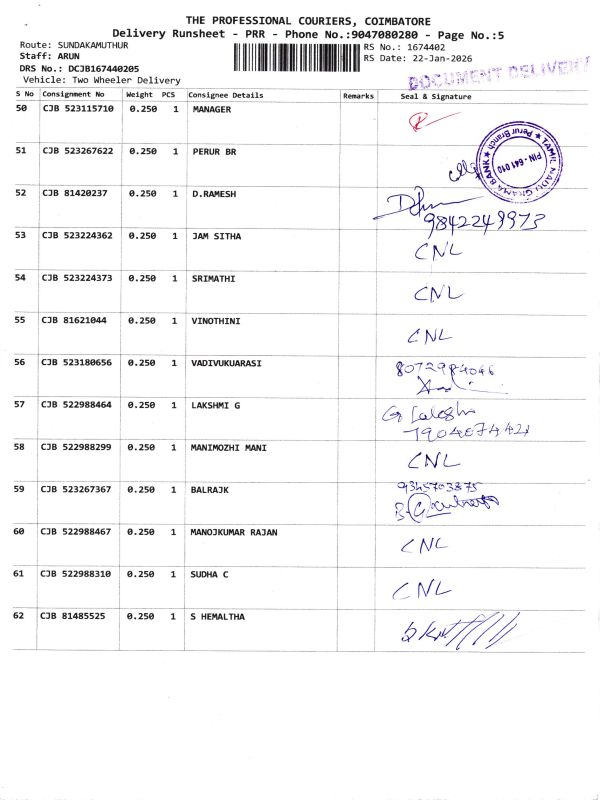 THE PROFESSIONAL COURIERS, COIMBATORE
Delivery Runsheet - PRR - Phone No.:9047080280 - Page No.:5
Route: SUNDAKAMUTHUR
RS No.: 1674402
Staff: ARUN
RS Date: 22-Jan-2026
DRS No.: DCJB167440205
Vehicle: Two Wheeler Delivery
DOCUMENT DELIVERY
S No Consignment No Weight PCS Consignee Details Remarks Seal & Signature
50 CJB 523115710 0.250 1 MANAGER
51 CJB 523267622 0.250 1 PERUR BR
★ TAMIL NADU GRAMA BANK ★ Perur Branch
PIN - 641 010
52 CJB 81420237 0.250 1 D.RAMESH
9842249973
53 CJB 523224362 0.250 1 JAM SITHA CNL
54 CJB 523224373 0.250 1 SRIMATHI CNL
55 CJB 81621044 0.250 1 VINOTHINI CNL
56 CJB 523180656 0.250 1 VADIVUKUARASI 8072984046
57 CJB 522988464 0.250 1 LAKSHMI G G
7904074421
58 CJB 522988299 0.250 1 MANIMOZHI MANI CNL
59 CJB 523267367 0.250 1 BALRAJK 9345703875
60 CJB 522988467 0.250 1 MANOJKUMAR RAJAN CNL
61 CJB 522988310 0.250 1 SUDHA C CNL
62 CJB 81485525 0.250 1 S HEMALTHA